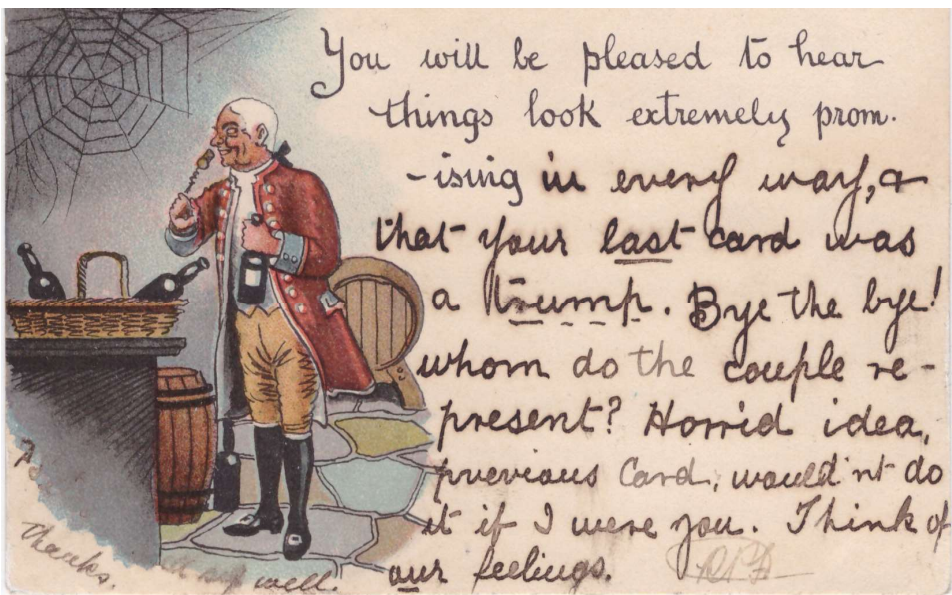 You will be pleased to hear
things look extremely prom.
-ising in every way, &
that your last card was
a trump. Bye the bye!
whom do the couple re-
present? Horrid idea,
previous Card, would'nt do
it if I were you. Think of
our feelings.
thanks.
well.